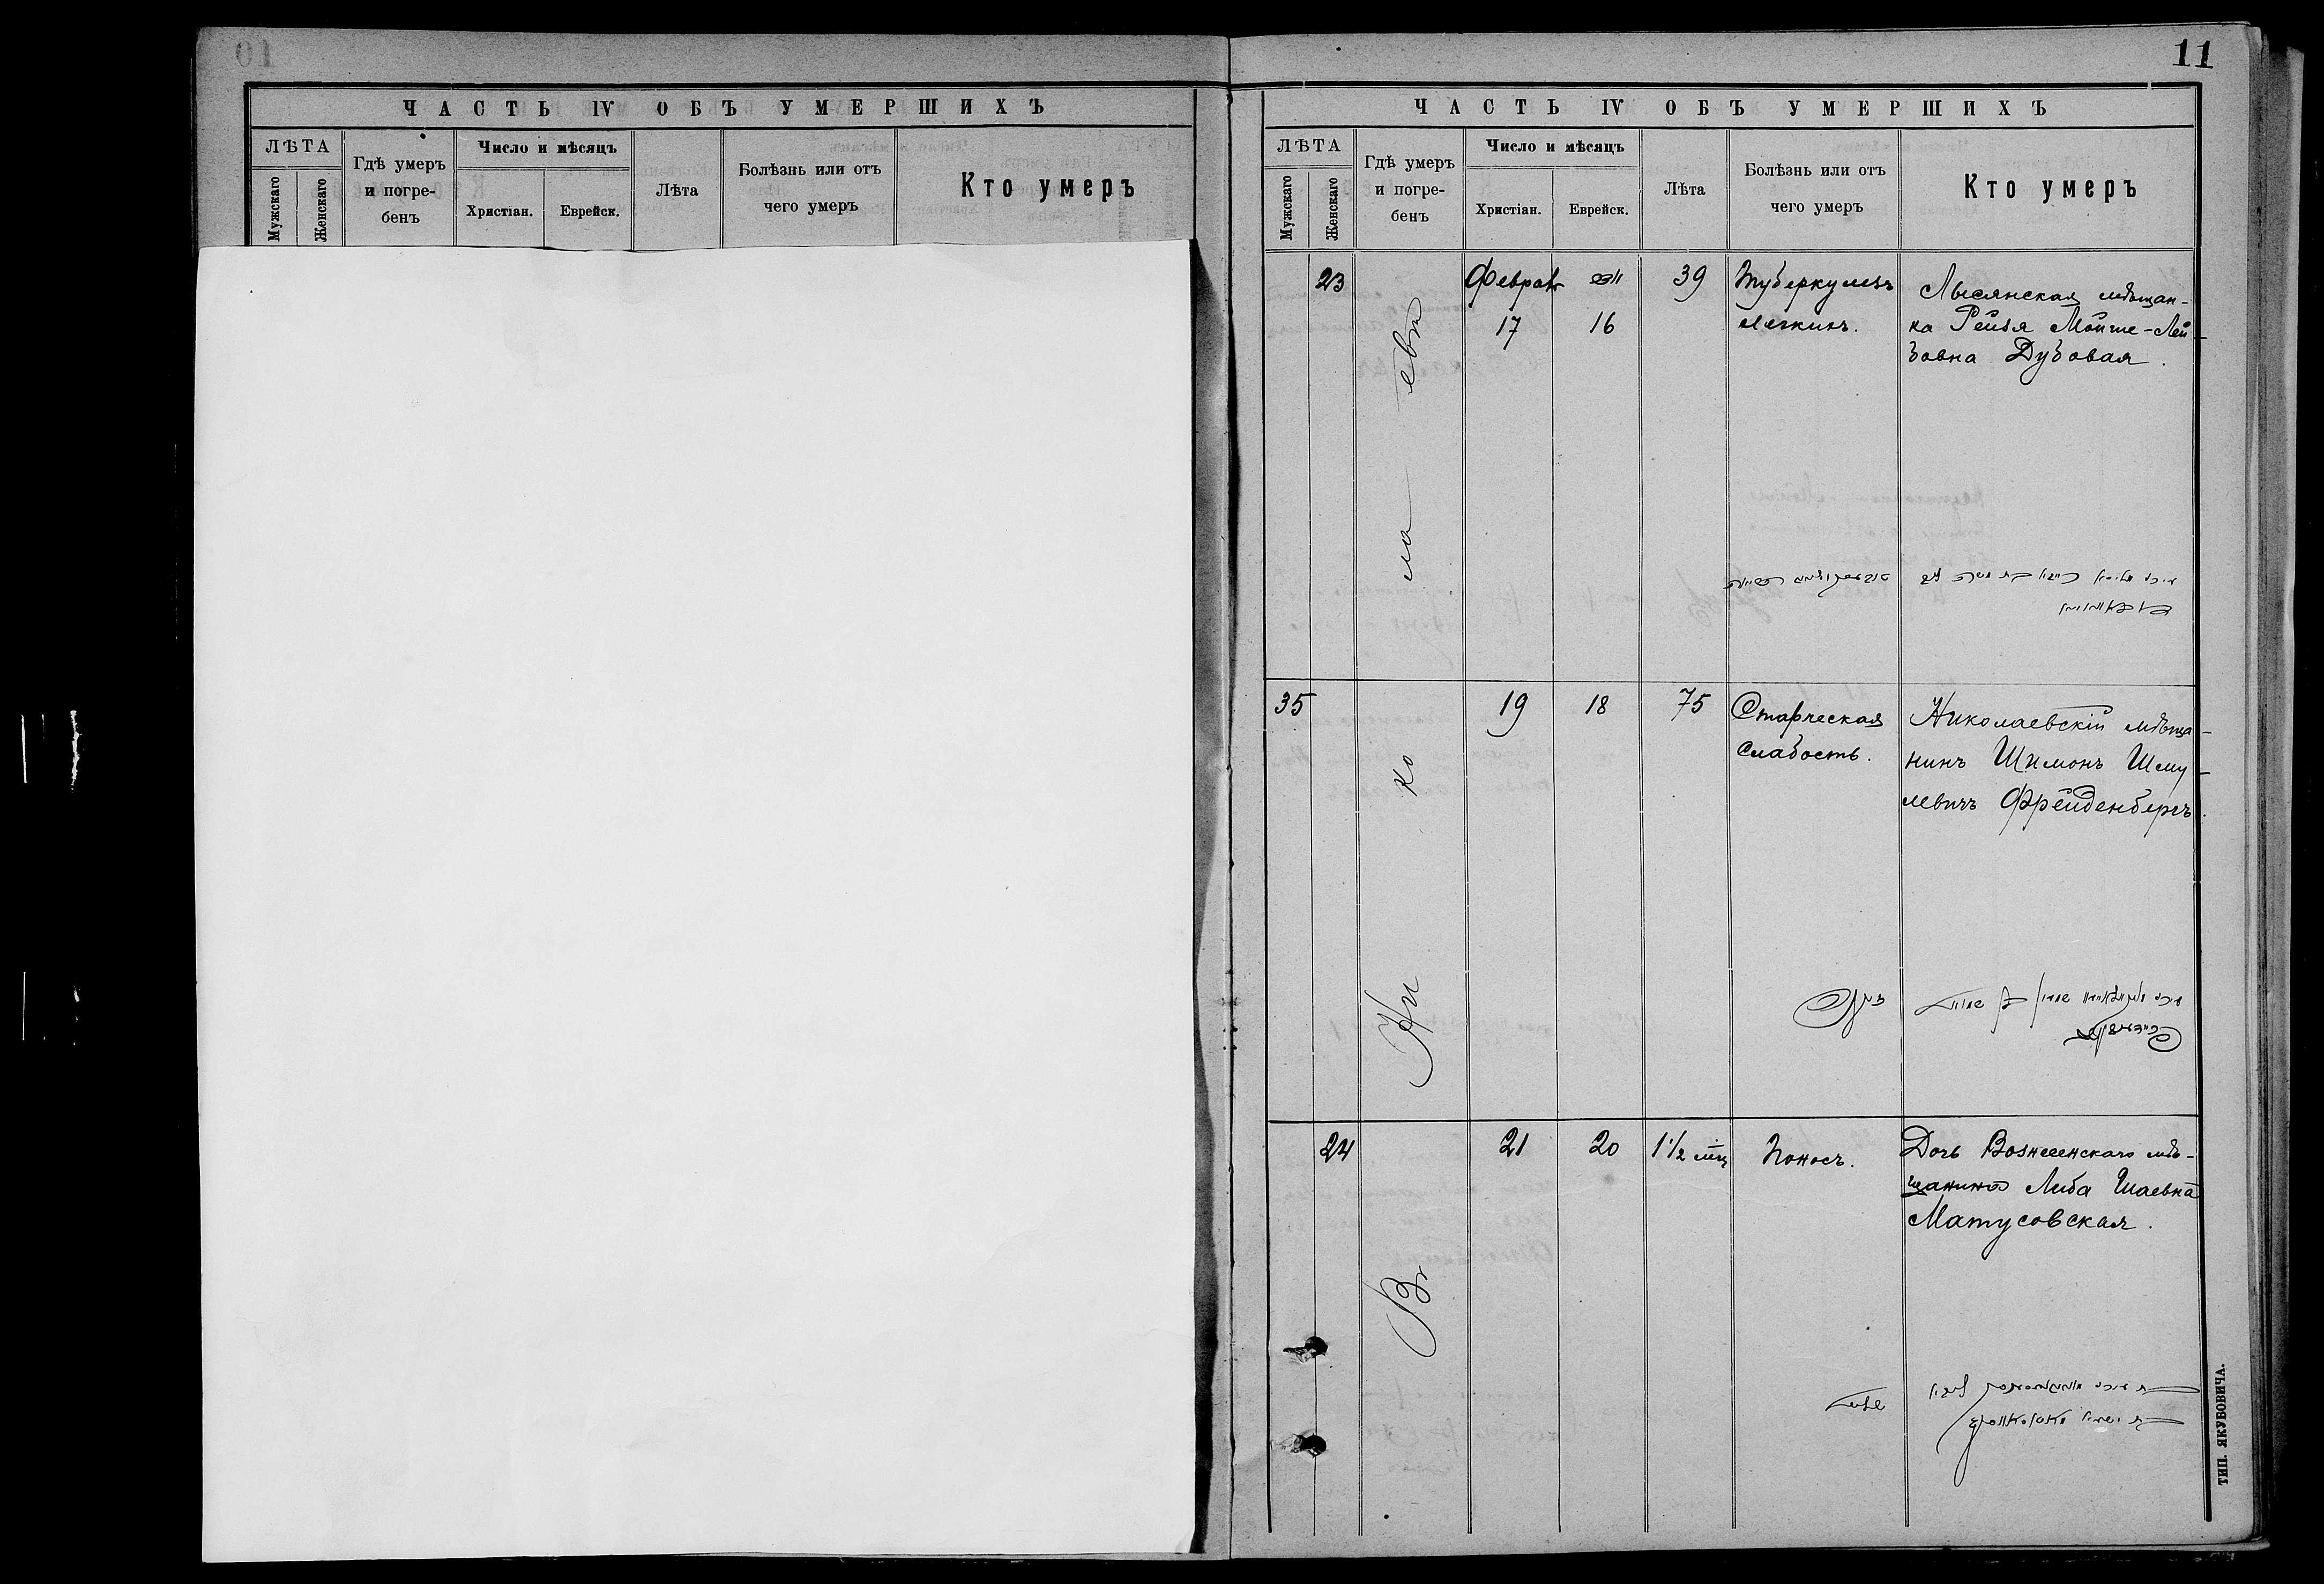 ЧАСТЬ IV ОБЪ УМЕРШИХЪ
ЛѢТА
Мужскаго
Женскаго
Гдѣ умеръ
и погре-
бенъ
Число и мѣсяцъ
Христіан.
Еврейск.
Лѣта
Болѣзнь или отъ
чего умеръ
Кто умеръ
11
ЧАСТЬ IV ОБЪ УМЕРШИХЪ
ЛѢТА
Мужскаго
Женскаго
Гдѣ умеръ
и погре-
бенъ
Число и мѣсяцъ
Христіан.
Еврейск.
Лѣта
Болѣзнь или отъ
чего умеръ
Кто умеръ
Въ Ни ко ла евѣ
23
Феврал
17
16
39
Туберкулезъ
легкихъ.
Лысянская мѣщан-
ка Рейзя Мойше-Лей-
бовна Дубовая.
35
19
18
75
Старческая
слабость.
Николаевскій мѣща-
нинъ Шимонъ Шму-
левичъ Фрейденбергъ.
24
21
20
1½ мц
Поносъ.
Дочь Вознесенскаго мѣ-
щанина Либа Шаевна
Матусовская.
ТИП. ЯКУБОВИЧА.